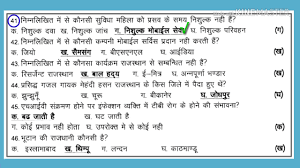 41 निम्नलिखित में से कौनसी सुविधा महिला को प्रसव के समय निशुल्क नहीं है?
क. निशुल्क दवा ख. निशुल्क जांच ग. निशुल्क मोबाईल सेवा घ. निशुल्क परिवहन (ग)
42. निम्नलिखित में से कौनसी कम्पनी मोबाईल सर्विस प्रदान नहीं करती हैं?
क. जियो ख. सैमसंग ग. बीएसएनएल घ. आईडिया (ख)
43. निम्नलिखित में से कौनसा कार्यक्रम राजस्थान से सम्बन्धित नहीं है?
क. रिसर्जेन्ट राजस्थान ख. बाल हृदय ग. ई–मित्र घ. अन्नपूर्णा भण्डार (ख)
44. प्रसिद्ध गजल गायक मेहंदी हसन राजस्थान के किस जिले में पैदा हुए थे?
क. झुन्झुनू ख. चूरू ग. बीकानेर घ. जोधपुर (घ)
45. एचआईवी संक्रमण होने पर इंफेक्शन व्यक्ति में टीबी रोग के होने की संभावना?
क. बढ जाती है ख. घट जाती है
ग. कोई प्रभाव नहीं होता घ. उपरोक्त में से कोई नही (क)
46. भूटान की राजधानी कौनसी है?
क. इस्लामाबाद ख. थिम्पू ग. लन्दन घ. काठमाण्डू (ख)